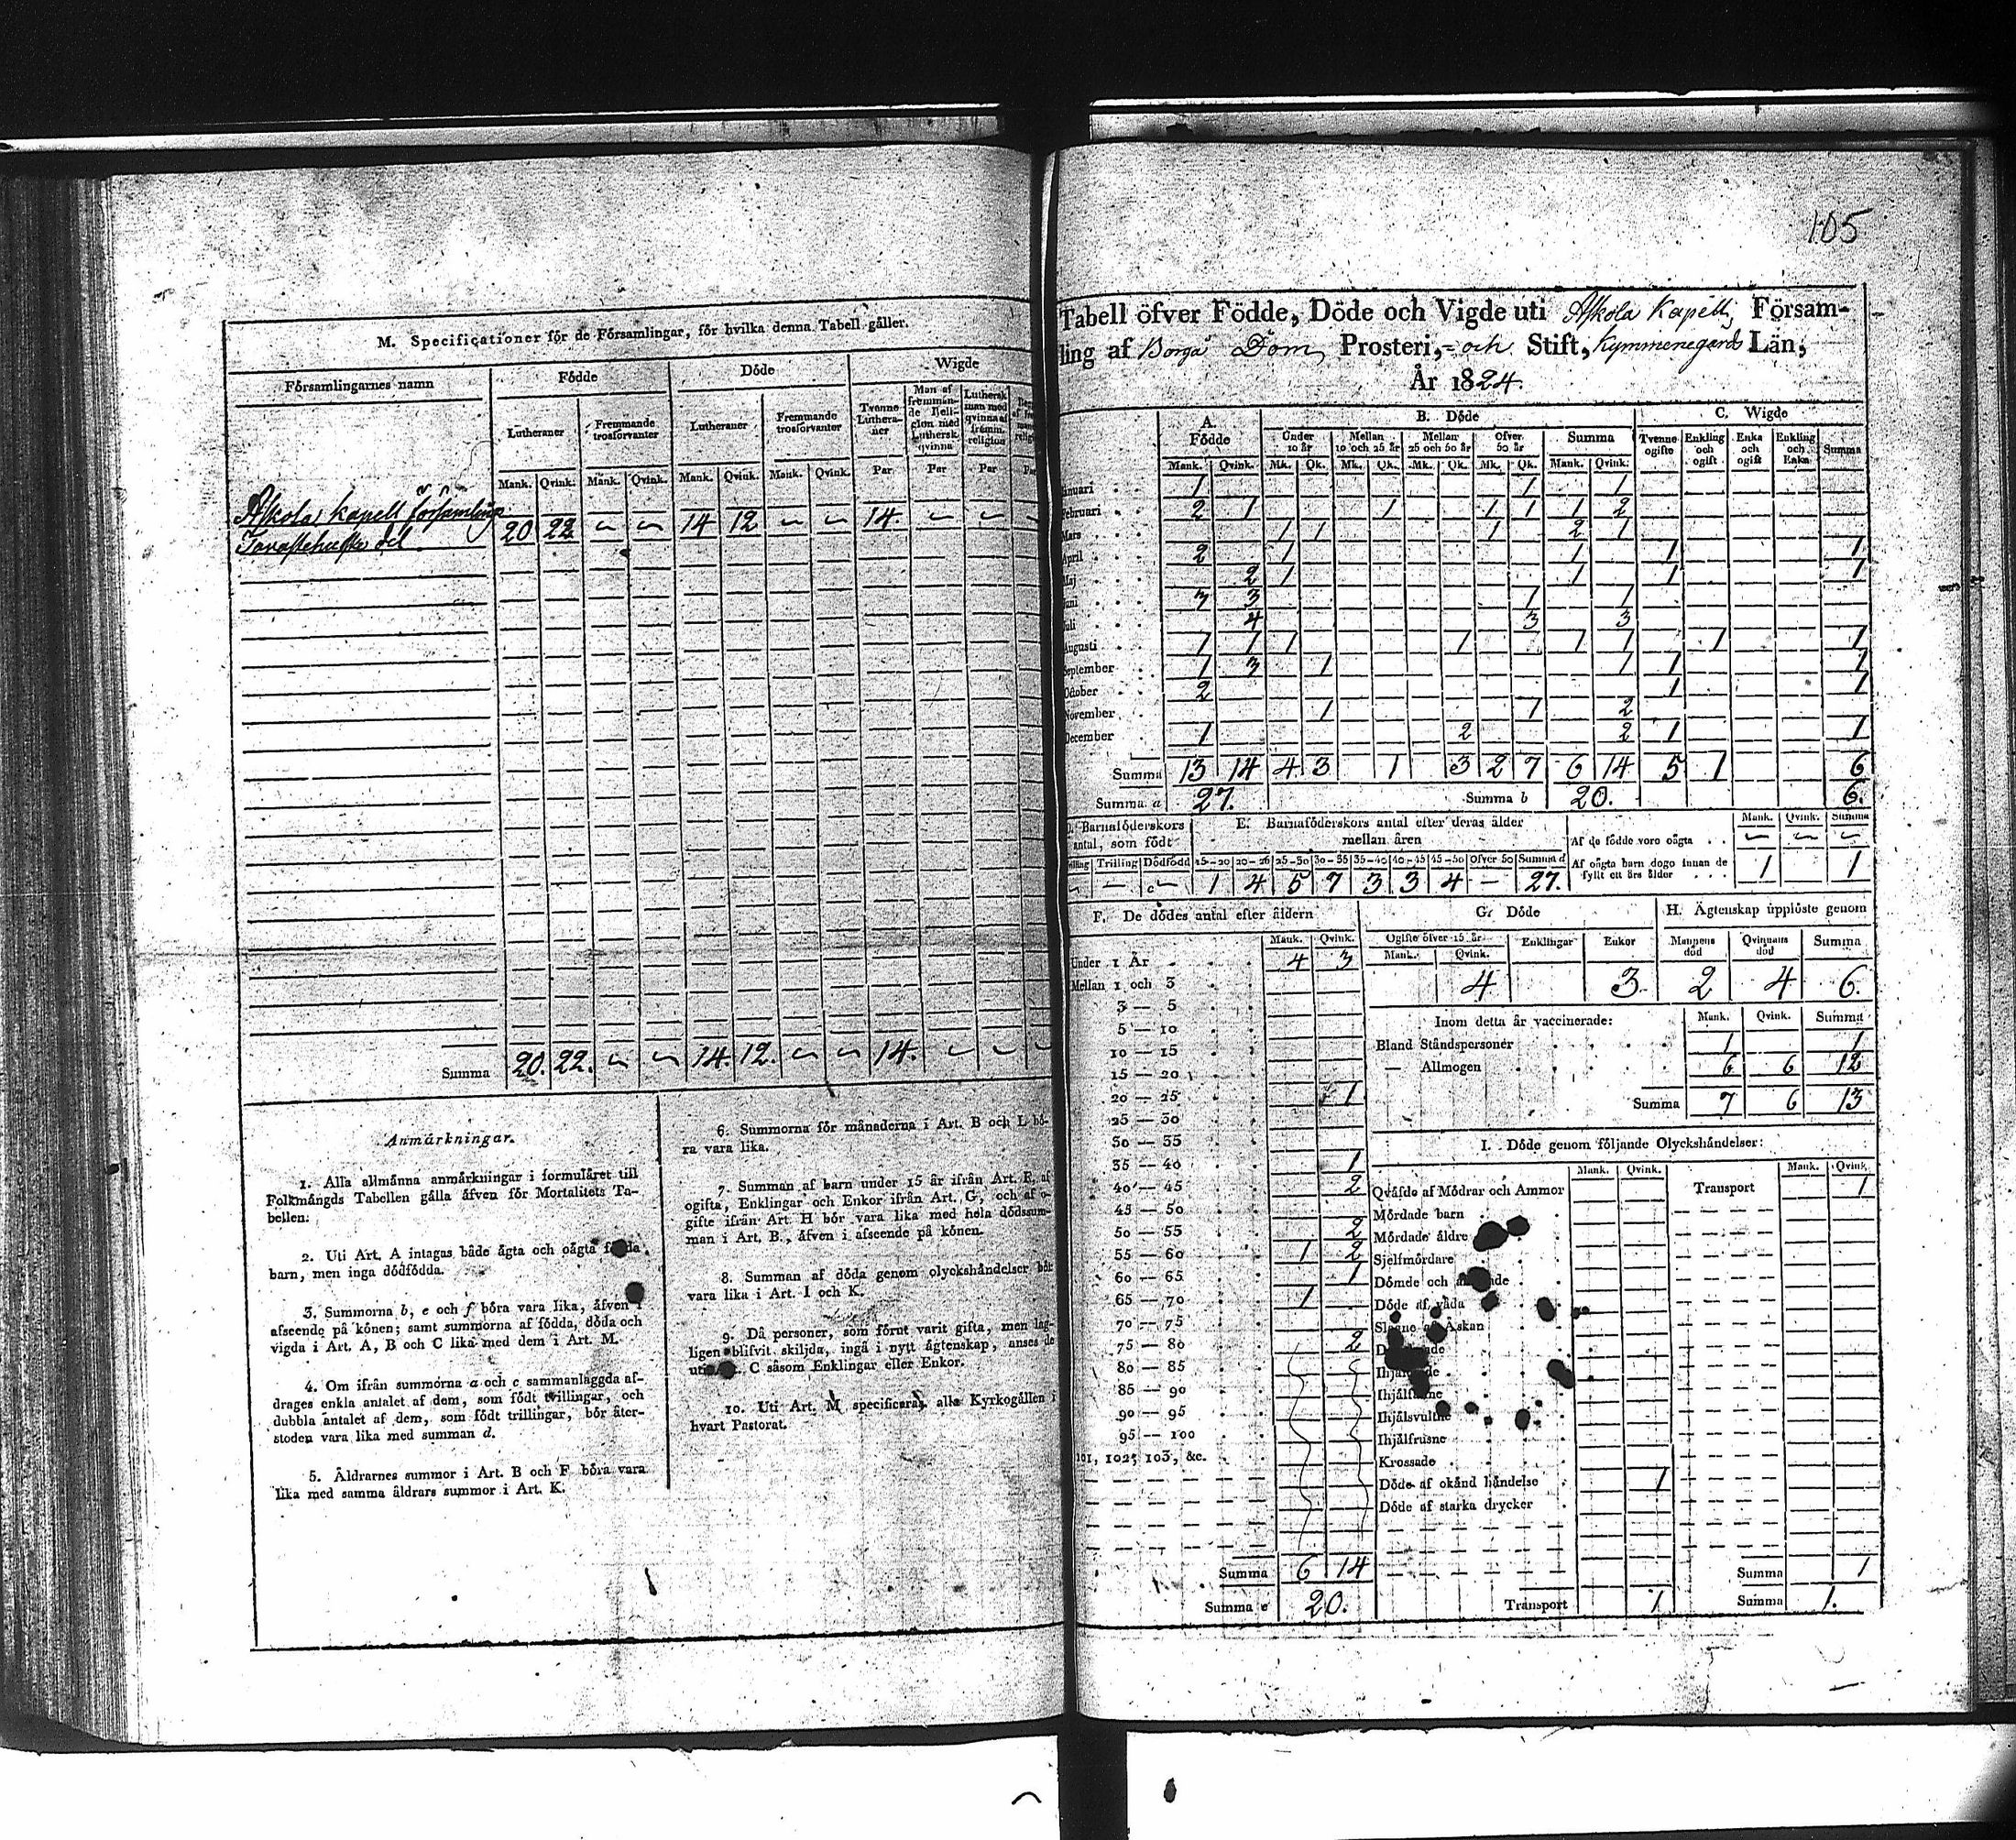 M. Specificationer för de Församlingar, för hvilka denna Tabell gäller.
Församlingarnes namn | Födde | Döde | Wigde
Lutheraner | Fremmande trosförvanter | Lutheraner | Fremmande trosförvanter | Tvenne Lutheraner | Man af fremmande Religion med Luthersk qvinna | Luthersk man med qvinna af främm. religion
Mank. Qvink. Mank. Qvink. Mank. Qvink. Mank. Qvink. Par Par Par
Askola kapell församlings
Tavastehusko del 20 22 ~ ~ 14 12 ~ ~ 14. ~ ~ ~
Summa 20. 22. ~ ~ 14. 12. ~ ~ 14. ~ ~ ~
Anmärkningar.
1. Alla allmänna anmärkningar i formuläret till
Folkmängds Tabellen gälla äfven för Mortalitets Ta-
bellen.
2. Uti Art. A intagas både ägta och oägta födda
barn, men inga dödfödda.
3. Summorna b, e och f böra vara lika, äfven i
afseende på könen; samt summorna af födda, döda och
vigda i Art. A, B och C lika med dem i Art. M.
4. Om ifrån summorna a och c sammanlaggda af-
drages enkla antalet af dem, som födt tvillingar, och
dubbla antalet af dem, som födt trillingar, bör åter-
stoden vara lika med summan d.
5. Åldrarnes summor i Art. B och F böra vara
lika med samma åldrars summor i Art. K.
6. Summorna för månaderna i Art. B och L bö-
ra vara lika.
7. Summan af barn under 15 år ifrån Art. F, af
ogifta, Enklingar och Enkor ifrån Art. G, och af
gifte ifrån Art. H bör vara lika med hela dödssum-
man i Art. B., äfven i afseende på könen.
8. Summan af döda genom olyckshändelser bör
vara lika i Art. I och K.
9. Då personer, som förut varit gifta, men lag-
ligen blifvit skiljda, ingå i nytt ägtenskap, anses de
uti C såsom Enklingar eller Enkor.
10. Uti Art. M specificeras alla Kyrkogällen i
hvart Pastorat.
105
Tabell öfver Födde, Döde och Vigde uti Askola Kapells Försam-
ling af Borgå Dom Prosteri, - och Stift, Kymmenegårds Län,
År 1824.
A. Födde | B. Döde | C. Wigde
Under 10 år | Mellan 10 och 25 år | Mellan 25 och 50 år | Öfver 50 år | Summa | Tvenne ogifte | Enkling och ogift | Enka och ogift | Enkling och Enka | Summa
Mank. Qvink. Mk. Qk. Mk. Qk. Mk. Qk. Mk. Qk. Mank. Qvink.
Januari 1 1 1
Februari 2 1 1 1 1 1 2
Mars 1 1 1 2 1
April 2 1 1 1 1
Maj 2 1 1 1 1
Juni 3 3 1 1
Juli 4 3 3
Augusti 1 1 1 1 1 1 1 1
September 1 3 1 1 1 1
October 2 1 1
November 1 1 2
December 1 2 2 1 1
Summa 13 14 4 3 1 3 2 7 6 14 5 1 6
Summa a 27. Summa b 20. 6.
D. Barnaföderskors antal, som födt | E. Barnaföderskors antal efter deras ålder mellan åren
Tvilling Trilling Dödfödd 15-20 20-25 25-30 30-35 35-40 40-45 45-50 Öfver 50 Summa d
~ — ~ 1 4 5 7 3 3 4 — 27.
Mank. Qvink. Summa
Af de födde voro oägta ~ ~ ~
Af oägta barn dogo innan de
fyllt ett års ålder 1 1
F. De dödes antal efter åldern
Mank. Qvink.
Under 1 År 4 3
Mellan 1 och 3
3 — 5
5 — 10
10 — 15
15 — 20
20 — 25 1
25 — 30
30 — 35
35 — 40 1
40 — 45 2
45 — 50
50 — 55 2
55 — 60 1 2
60 — 65 1
65 — 70 1
70 — 75
75 — 80 2
80 — 85
85 — 90
90 — 95
95 — 100
101, 102, 103, &c.
Summa 6 14
Summa e 20.
G. Döde
Ogifte öfver 15 år Mank. Qvink. | Enklingar | Enkor
4 3
H. Ägtenskap upplöste genom
Mannens död | Qvinnans död | Summa
2 4 6.
Inom detta år vaccinerade: Mank. Qvink. Summa
Bland Ståndspersoner 1 1
— Allmogen 6 6 12
Summa 7 6 13
I. Döde genom följande Olyckshändelser:
Mank. Qvink. Mank. Qvink.
Qväfde af Mödrar och Ammor Transport 1
Mördade barn
Mördade äldre
Sjelfmördare
Dömde och
Döde af våda
Åskan
Ihjälsvultne
Ihjälfrusne
Krossade
Döde af okänd händelse 1
Döde af starka drycker
Summa 1
Transport 1 Summa 1.